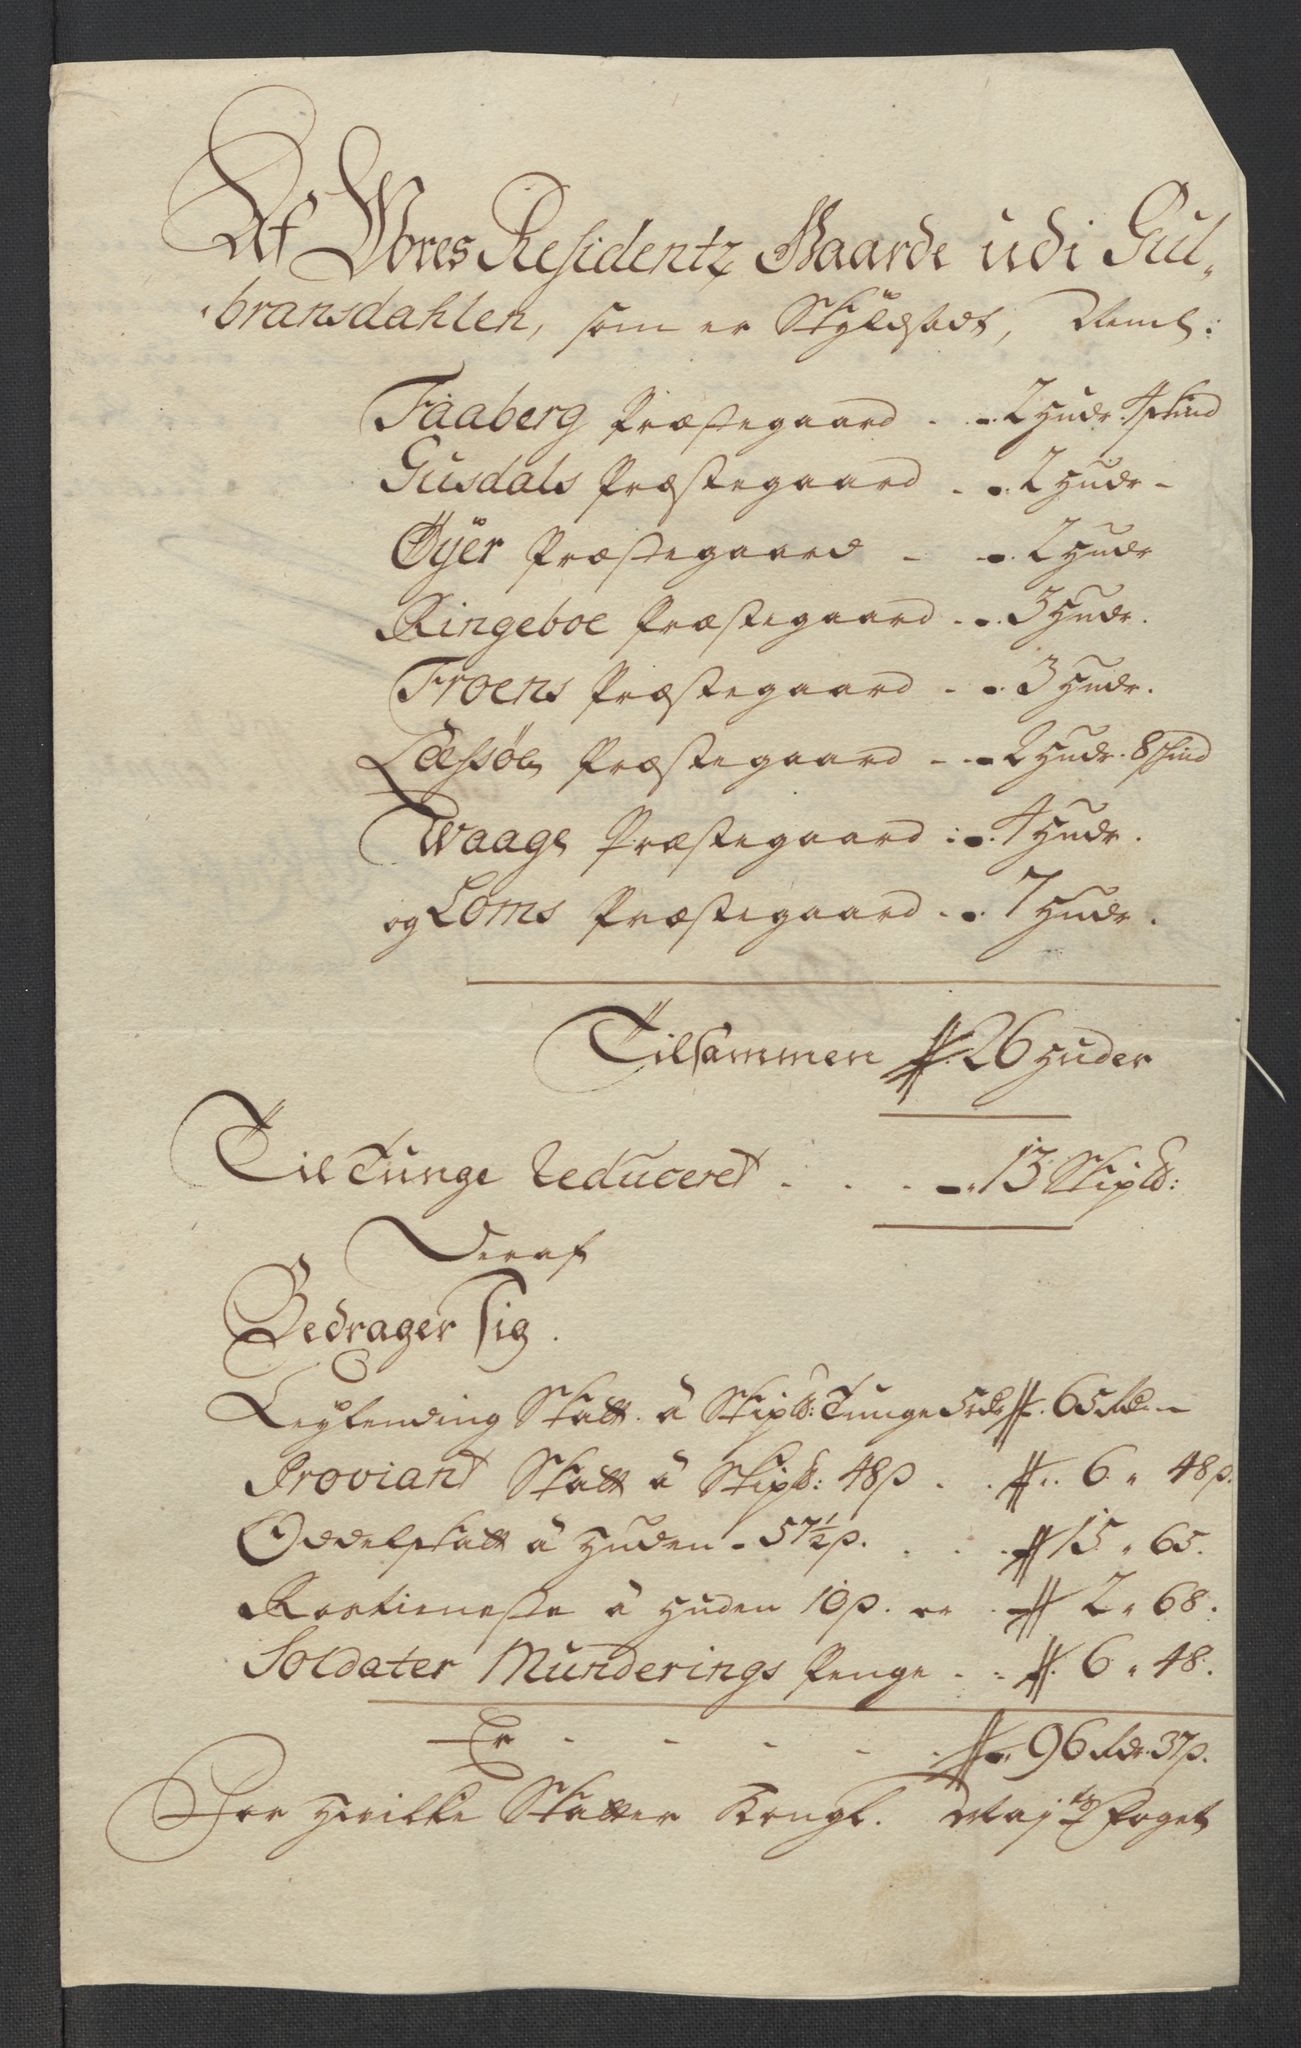 Af Vores Residentz Gaarde udi Gul-
bransdahlen, som er Skÿldsadt, Neml:
Faaberg Præstegaard - - 2 Hudr. 4 skind
Gusdals Præstegaard - - 2 Hudr -
Øÿer Præstegaard - - 2 Hudr
Ringeboe Præstegaard - - 3 Hudr.
Froens Præstegaard - - 3 Hudr.
Læssøe Præstegaard - - 2 Hudr. 8 skind
Waage Præstegaard - - 4 Hudr.
og Loms Præstegaard - - 7 Hudr.
Tilsammen 26 Huder
Til Tunge Reduceret - - - 13 Skip℔:
Deraf
Bedrager Sig.
Leylending Skatt á Skip℔: Tunge 5 rdr 65 Rdr. -
Proviant Skatt á Skip℔: 48 β - - 6 " 48 β.
Oddelskatt á Huden - 57½ β. - - 15 " 65.
Rostieneste á Huden 10 β. er - 2 " 68.
Soldater Munderings Penge - - 6 " 48.
Er - - - - - 96 Rdr. 37 β.
For hvilke Skatter Kongl. Maj:ts Foget